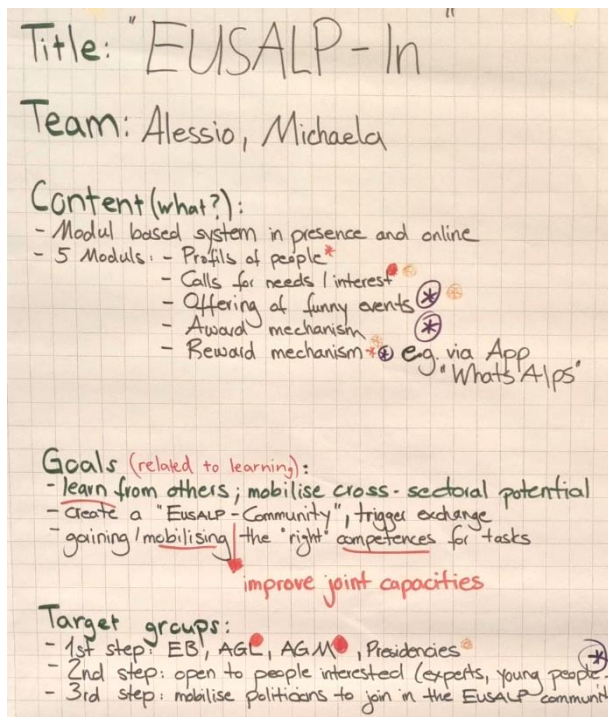 Title: "EUSALP-In"
Team: Alessio, Michaela
Content (what?):
- Modul based system in presence and online
- 5 Moduls: - Profils of people*
- Calls for needs / interest
- Offering of funny events *
- Award mechanism *
- Reward mechanism * * e.g. via App
"WhatsAlps"
Goals (related to learning):
- learn from others; mobilise cross-sectoral potential
- create a "EUSALP-Community", trigger exchange
- gaining / mobilising the "right" competences for tasks
improve joint capacities
Target groups:
- 1st step: EB, AGL, AGM, Presidencies
*
- 2nd step: open to people interested (experts, young people-
- 3rd step: mobilise politicians to join in the EUSALP communit